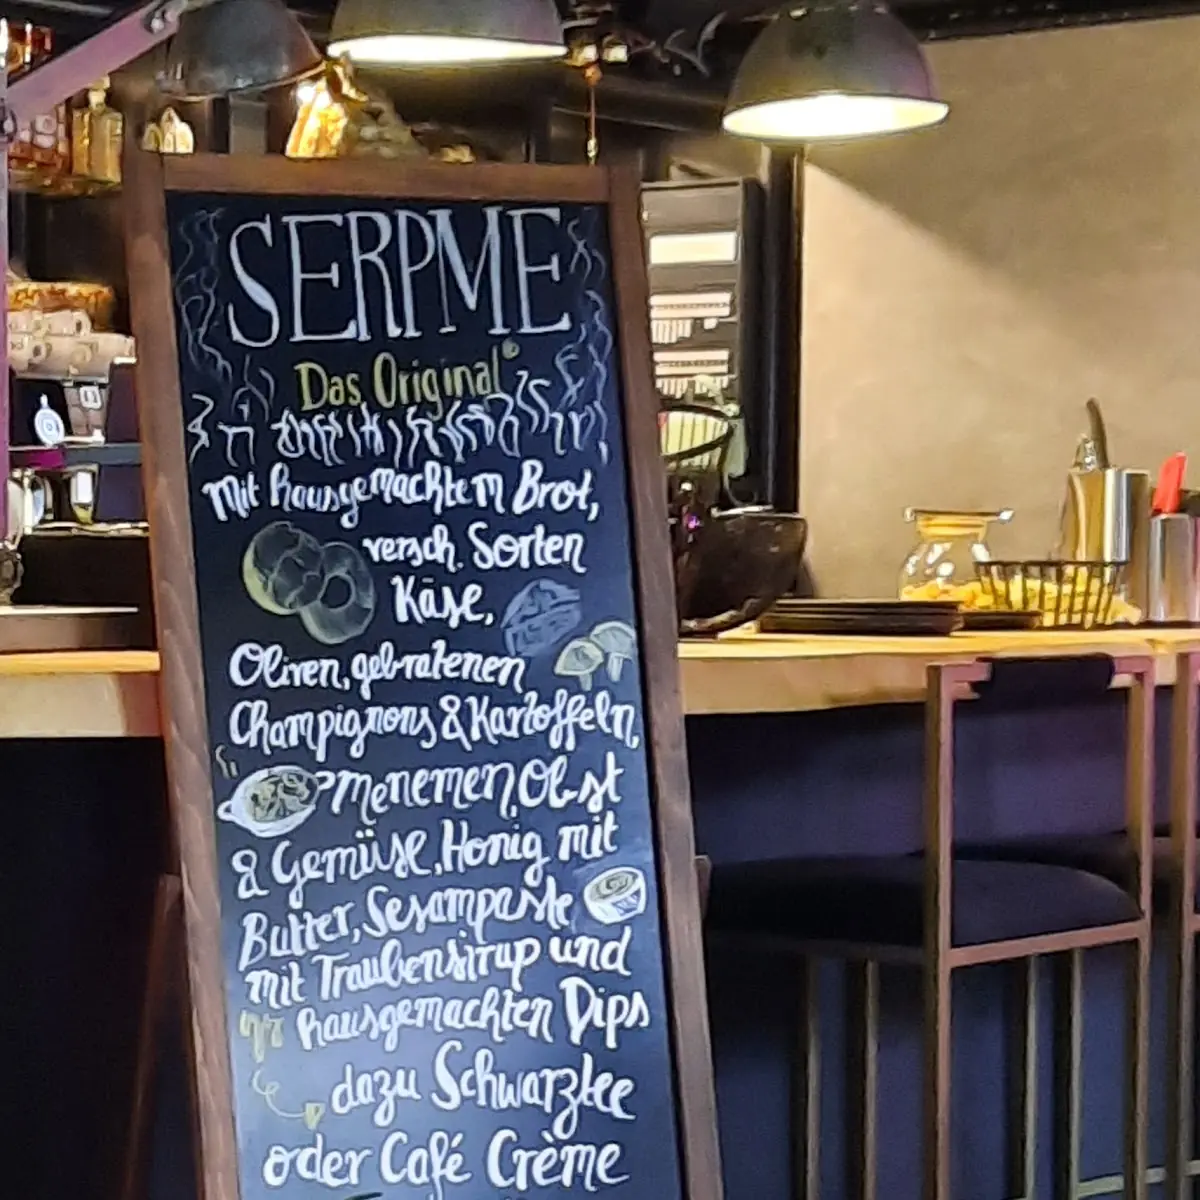 SERPME
Das Original
Mit hausgemachtem Brot,
versch. Sorten
Käse,
Oliven, gebratenen
Champignons & Kartoffeln,
Menemen, Obst
& Gemüse, Honig mit
Butter, Sesampaste
mit Traubensirup und
hausgemachten Dips
dazu Schwarztee
oder Café Crème